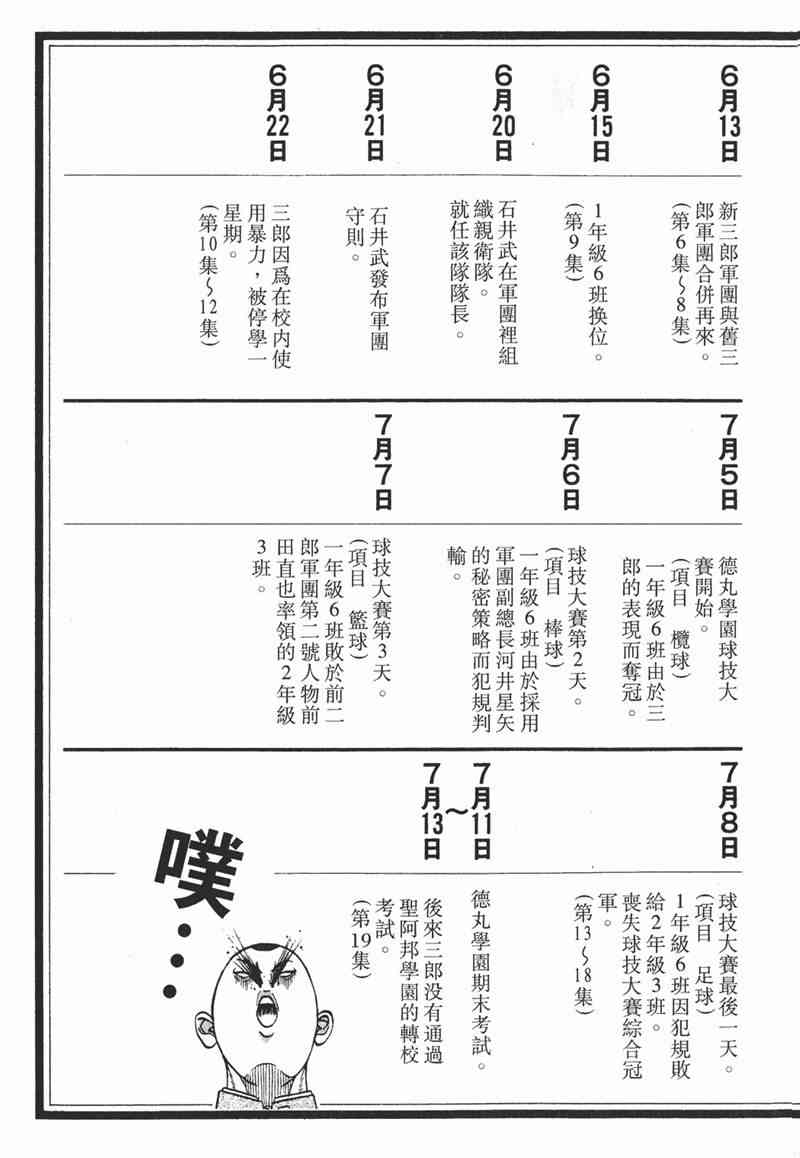 6月13日
新三郎軍團與舊三
郎軍團合併再來。
(第6集~8集)
6月15日
1年級6班換位。
(第9集)
6月20日
石井武在軍團裡組
織親衛隊。
就任該隊隊長。
6月21日
石井武發布軍團
守則。
6月22日
三郎因爲在校內使
用暴力,被停學一
星期。
(第10集~12集)
7月5日
德丸學園球技大
賽開始。
(項目 欖球)
一年級6班由於三
郎的表現而奪冠。
7月6日
球技大賽第2天。
(項目 棒球)
一年級6班由於採用
軍團副總長河井星矢
的秘密策略而犯規判
輸。
7月7日
球技大賽第3天。
(項目 籃球)
一年級6班敗於前二
郎軍團第二號人物前
田直也率領的2年級
3班。
7月8日
球技大賽最後一天。
(項目 足球)
1年級6班因犯規敗
給2年級3班。
喪失球技大賽綜合冠
軍。
(第13~18集)
7月11日
~
7月13日
德丸學園期末考試。
後來三郎没有通過
聖阿邦學園的轉校
考試。
(第19集)
噗…